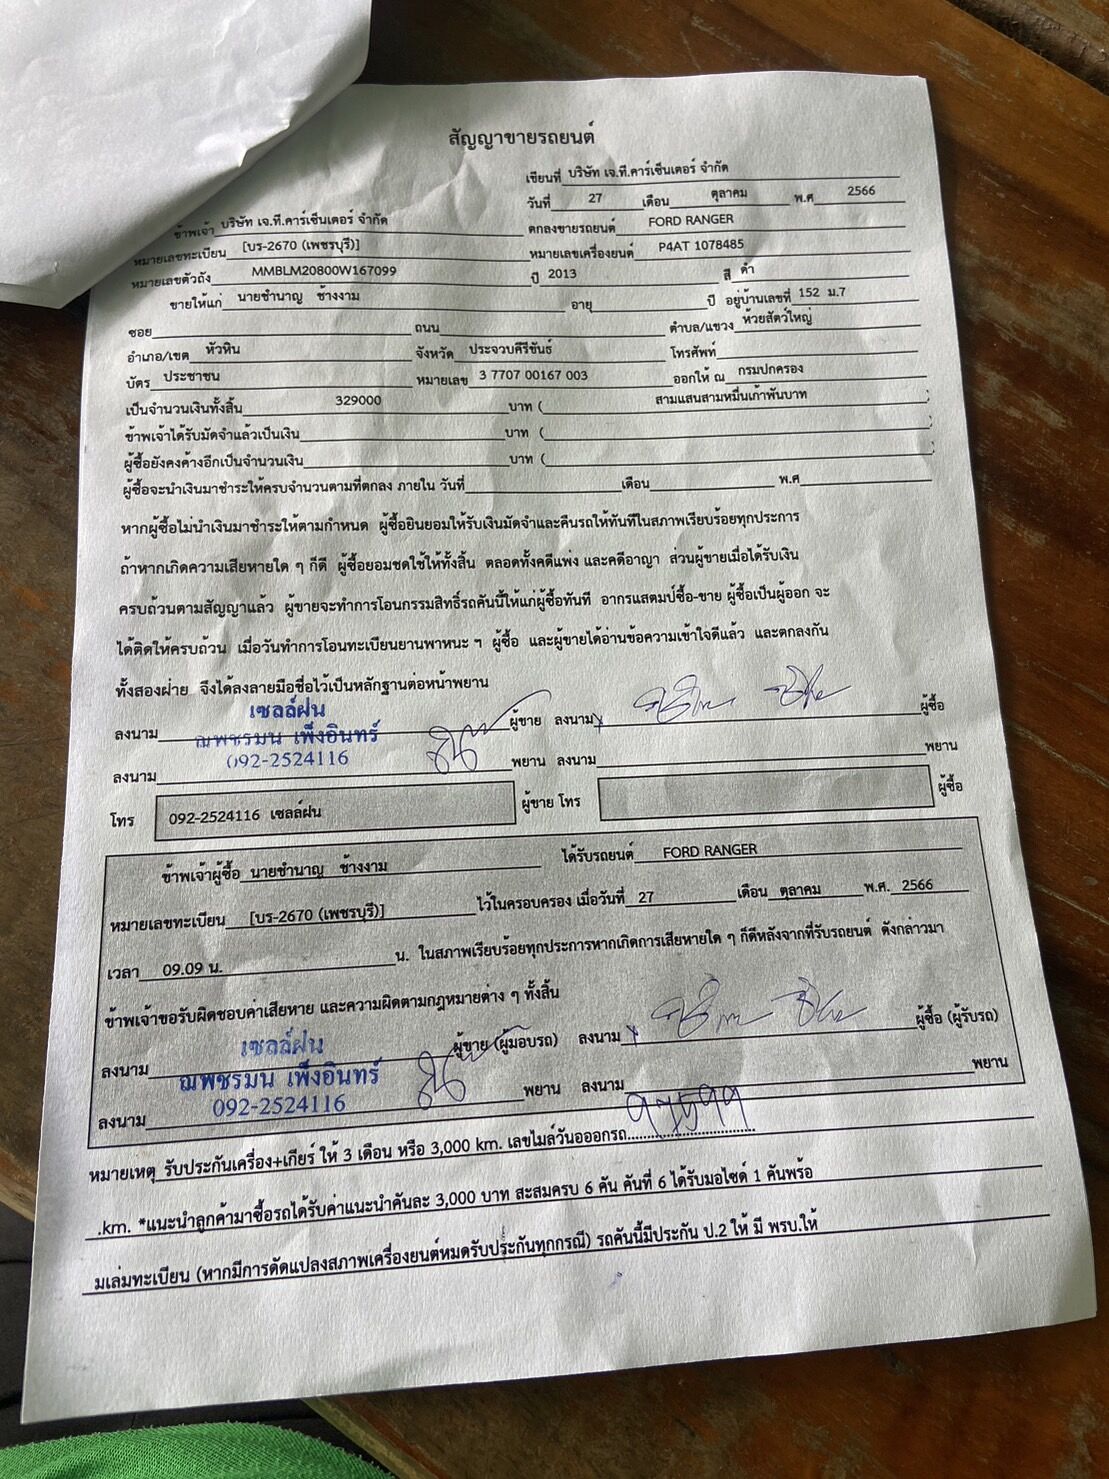 สัญญาขายรถยนต์
เขียนที่ บริษัท เจ.ที.คาร์เซ็นเตอร์ จำกัด
วันที่ 27 เดือน ตุลาคม พ.ศ 2566
ข้าพเจ้า บริษัท เจ.ที.คาร์เซ็นเตอร์ จำกัด ตกลงขายรถยนต์ FORD RANGER
หมายเลขทะเบียน [บร-2670 (เพชรบุรี)] หมายเลขเครื่องยนต์ P4AT 1078485
หมายเลขตัวถัง MMBLM20800W167099 ปี 2013 สี ดำ
ขายให้แก่ นายชำนาญ ช้างงาม อายุ ปี อยู่บ้านเลขที่ 152 ม.7
ซอย ถนน ตำบล/แขวง ห้วยสัตว์ใหญ่
อำเภอ/เขต หัวหิน จังหวัด ประจวบคีรีขันธ์ โทรศัพท์
บัตร ประชาชน หมายเลข 3 7707 00167 003 ออกให้ ณ กรมปกครอง
เป็นจำนวนเงินทั้งสิ้น 329000 บาท ( สามแสนสามหมื่นเก้าพันบาท )
ข้าพเจ้าได้รับมัดจำแล้วเป็นเงิน บาท ( )
ผู้ซื้อยังคงค้างอีกเป็นจำนวนเงิน บาท ( )
ผู้ซื้อจะนำเงินมาชำระให้ครบจำนวนตามที่ตกลง ภายใน วันที่ เดือน พ.ศ
หากผู้ซื้อไม่นำเงินมาชำระให้ตามกำหนด ผู้ซื้อยินยอมให้รับเงินมัดจำและคืนรถให้ทันทีในสภาพเรียบร้อยทุกประการ
ถ้าหากเกิดความเสียหายใด ๆ ก็ดี ผู้ซื้อยอมชดใช้ให้ทั้งสิ้น ตลอดทั้งคดีแพ่ง และคดีอาญา ส่วนผู้ขายเมื่อได้รับเงิน
ครบถ้วนตามสัญญาแล้ว ผู้ขายจะทำการโอนกรรมสิทธิ์รถคันนี้ให้แก่ผู้ซื้อทันที อากรแสตมป์ซื้อ-ขาย ผู้ซื้อเป็นผู้ออก จะ
ได้ติดให้ครบถ้วน เมื่อวันทำการโอนทะเบียนยานพาหนะ ฯ ผู้ซื้อ และผู้ขายได้อ่านข้อความเข้าใจดีแล้ว และตกลงกัน
ทั้งสองฝ่าย จึงได้ลงลายมือชื่อไว้เป็นหลักฐานต่อหน้าพยาน
เซลล์ฝน
ลงนาม ณพชรมน เพ็งอินทร์ ผู้ขาย ลงนาม ผู้ซื้อ
092-2524116
ลงนาม พยาน ลงนาม พยาน
โทร 092-2524116 เซลล์ฝน ผู้ขาย โทร ผู้ซื้อ
ข้าพเจ้าผู้ซื้อ นายชำนาญ ช้างงาม ได้รับรถยนต์ FORD RANGER
หมายเลขทะเบียน [บร-2670 (เพชรบุรี)] ไว้ในครอบครอง เมื่อวันที่ 27 เดือน ตุลาคม พ.ศ. 2566
เวลา 09.09 น. น. ในสภาพเรียบร้อยทุกประการหากเกิดการเสียหายใด ๆ ก็ดีหลังจากที่รับรถยนต์ ดังกล่าวมา
ข้าพเจ้าขอรับผิดชอบค่าเสียหาย และความผิดตามกฎหมายต่าง ๆ ทั้งสิ้น
เซลล์ฝน
ลงนาม ผู้ขาย (ผู้มอบรถ) ลงนาม ผู้ซื้อ (ผู้รับรถ)
ณพชรมน เพ็งอินทร์
092-2524116
ลงนาม พยาน ลงนาม พยาน
หมายเหตุ รับประกันเครื่อง+เกียร์ ให้ 3 เดือน หรือ 3,000 km. เลขไมล์วันอออกรถ
.km. *แนะนำลูกค้ามาซื้อรถได้รับค่าแนะนำคันละ 3,000 บาท สะสมครบ 6 คัน คันที่ 6 ได้รับมอไซด์ 1 คันพร้อ
มเล่มทะเบียน (หากมีการดัดแปลงสภาพเครื่องยนต์หมดรับประกันทุกกรณี) รถคันนี้มีประกัน ป.2 ให้ มี พรบ.ให้